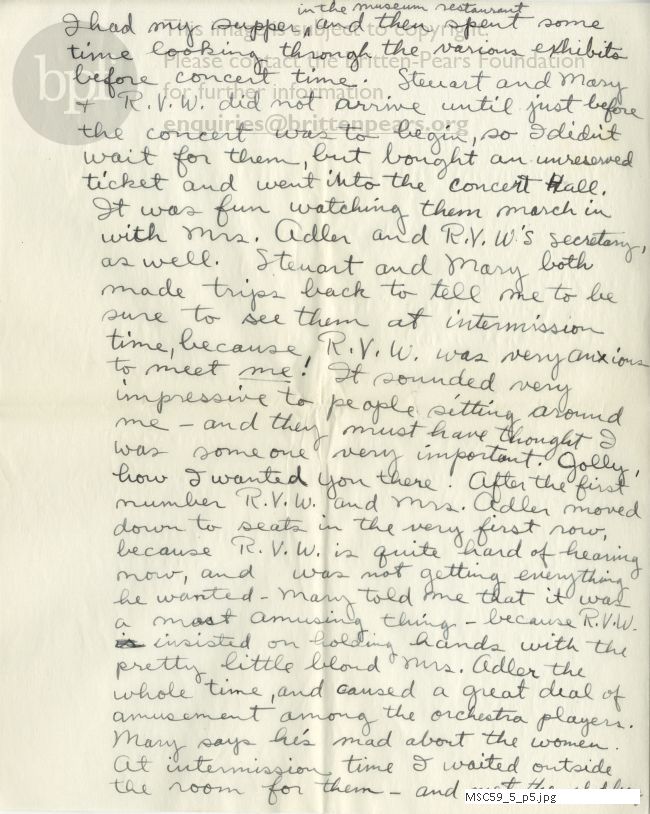 in the museum restaurant
I had my supper, and then spent some
time looking through the various exhibits
before concert time. Steuart and Mary
+ R.V.W. did not arrive until just before
the concert was to begin, so I didn't
wait for them, but bought an unreserved
ticket and went into the concert Hall.
It was fun watching them march in
with Mrs. Adler and R.V.W'S secretary,
as well. Steuart and Mary both
made trips back to tell me to be
sure to see them at intermission
time, because, R.V.W. was very anxious
to meet me! It sounded very
impressive to people sitting around
me - and they must have thought I
was someone very important. Jolly,
how I wanted you there. After the first
number R.V.W. and Mrs. Adler moved
down to seats in the very first row,
because R.V.W. is quite hard of hearing
now, and was not getting everything
he wanted - Mary told me that it was
a most amusing thing - because R.V.W.
insisted on holding hands with the
pretty little blond Mrs. Adler the
whole time, and caused a great deal of
amusement among the orchestra players.
Mary says he's mad about the women.
At intermission time I waited outside
the room for them - and met the
bp
This image is subject to copyright.
Please contact the Britten-Pears Foundation
for further information
enquiries@brittenpears.org
MSC59_5_p5.jpg